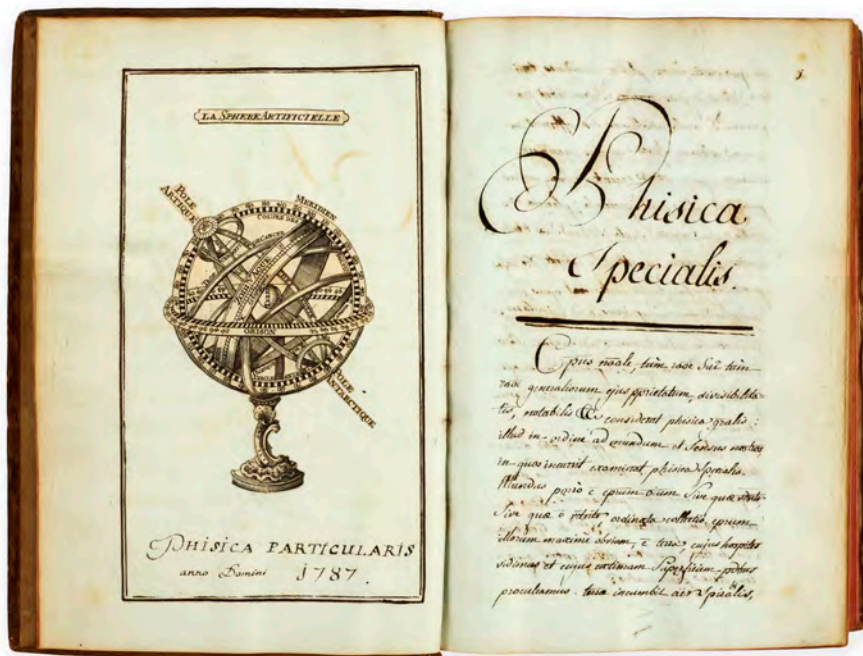 LA SPHERE ARTIFICIELLE
POLE
ARTIQUE
MERIDIEN
COLURE DES
CANCER
ORISON
POLE
ANTARCTIQUE
PHISICA PARTICULARIS
anno Domini 1787.
Phisica
Specialis.
Cpus naale, tùm raōe Sui tùm
raōe generaliorum ejus pprietatum, divisibilita-
tis, notabilis &c considerat phisica gralis:
illud in ordine ad mundum et Sensus nostros
in quos incurrit examinat phisica Specialis.
Mundus porrò ē cprum oium Sive quæ
Sive quæ ordinata collectio. cprum
illorum maximè obvium, ē terra, cujus hospites
vidimus et cujus extimam Superficiem pedibus
proculcamus. terræ incumbit aër Spirabilis,